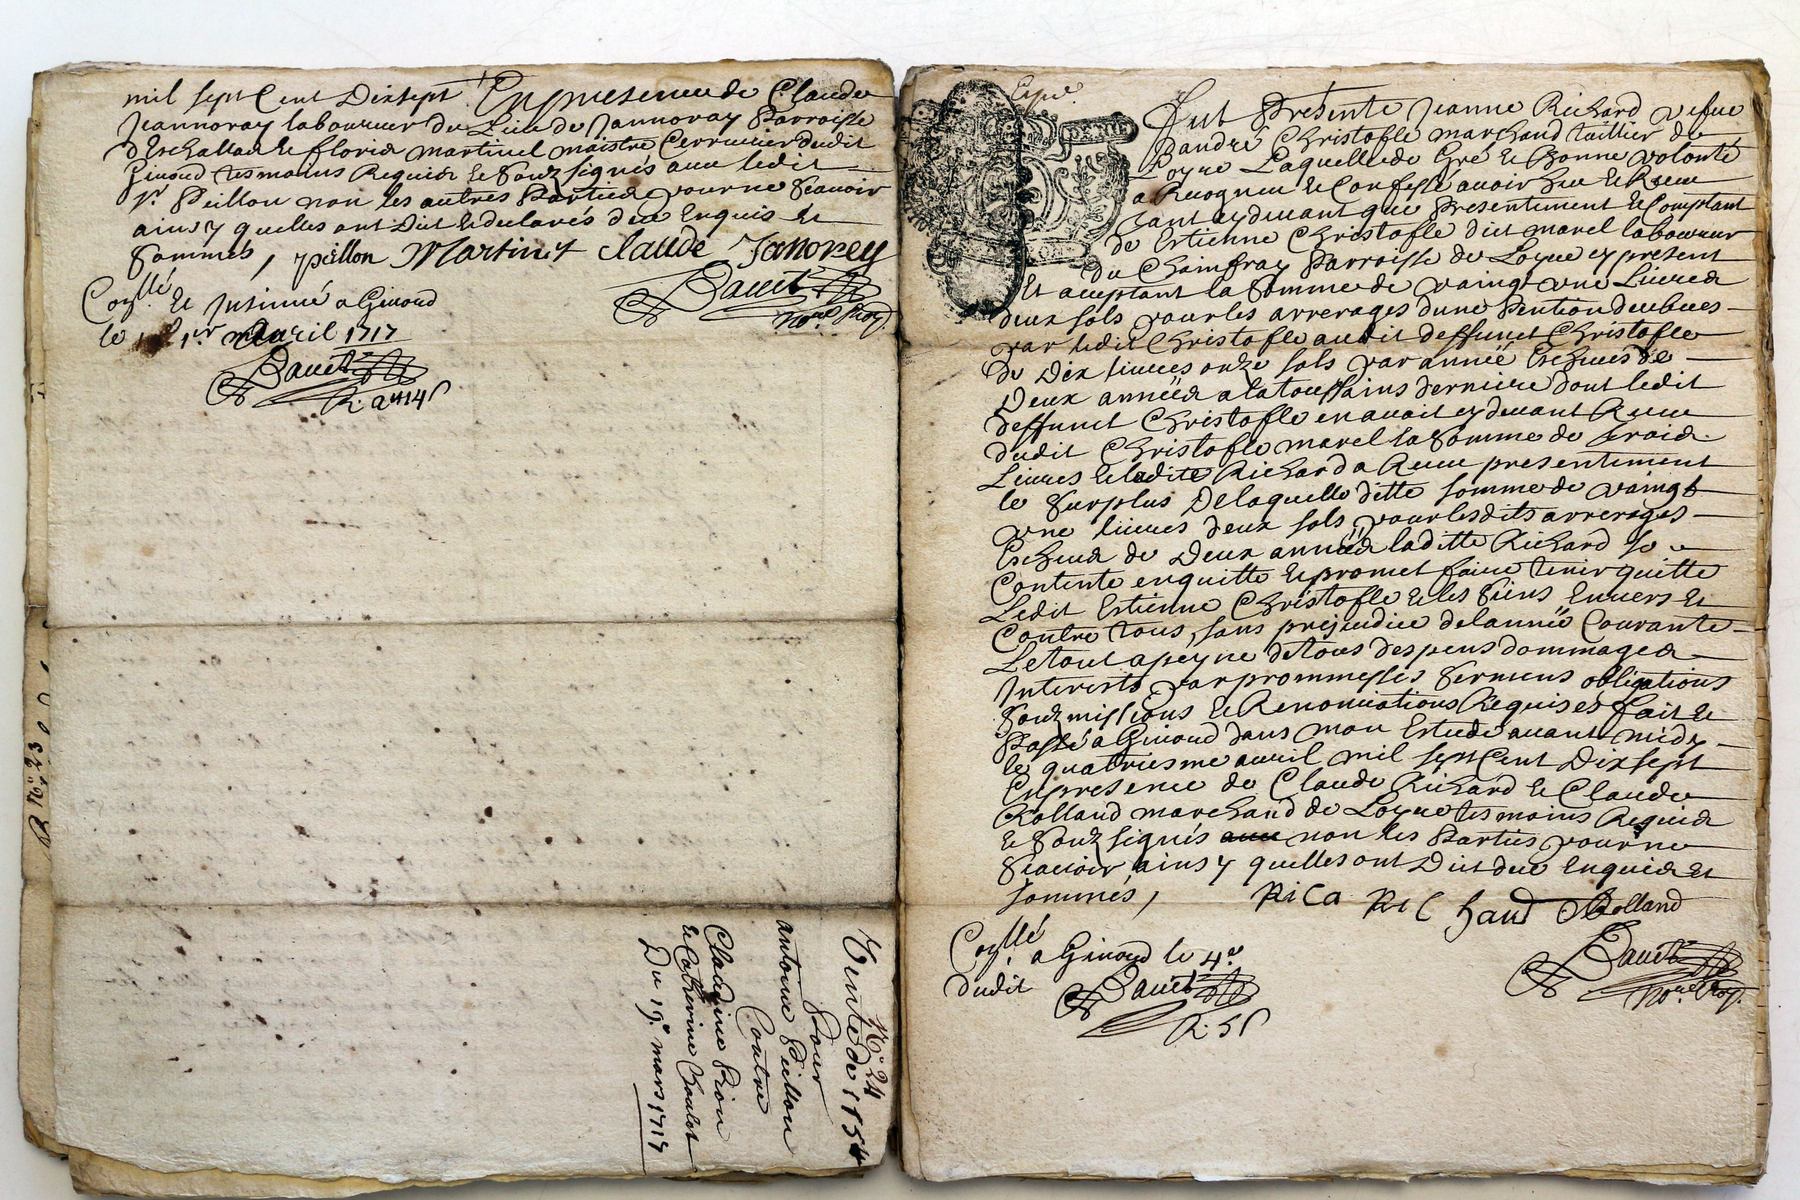 mil sept Cent Dixsept En presence de Claude
Jeannoray laboureur du Lieu de Jannoray Parroisse
d'Eschallas et floris martinel maistre Cerrurier dudit
Givord tesmoins Requis et Soubsignés avec ledit
Sr. Peillon non les autres Parties pour ne Scavoir
ainsy quelles ont Dit et declarés de ce Enquis et
Sommés, peillon Martinet Claude Janorey
Collé. Et Insinué a Givord
le 1er Avril 1717
not. Roy.
R. 14 s
N° 23
N° 24
Vente de 115
Pour
antoine Peillon
Contre
Claudine Pion
et Catherine
Du 19e. mars 1717
Expé.
Fut Presente Jeanne Richard vefve
d'andré Christofle marchand taillier de
Loyre Laquelle de Gré et Bonne volonté
a Recogneu et Confessé avoir heu et Receu
tant cydevant que Presentement et Comptant
de Estienne Christofle dit marel laboureur
du Chamfray Parroisse de Loyre cy present
Et acceptant la Somme de vaingt une Livres
deux sols pour les arrerages dune Pention deubues
par ledit Christofle audit deffunct Christofle
de Dix livres onze sols par année Escheues de
Deux années a la toussains derniere dont ledit
deffunct Christofle en avoit cydevant Receu
dudit Christofle marel la Somme de trois
Livres et ladite Richard a Receu presentement
le Surplus De laquelle ditte somme de vaingt
une livres deux sols pour lesdits arrerages
Escheus de Deux années laditte Richard se
Contente en quitte et promet faire tenir quitte
Ledit Estienne Christofle et les Siens Envers et
Contre tous, sans prejudice de lannée Courante
Le tout a peyne de tous despens dommages
Interests par prommesses Sermens obligations
Soubzmissions et Renonciations Requises fait et
Passé a Givord dans mon Estude avant midy
le quatriesme avril mil sept Cent Dixsept
En presence de Claude Richard et Claude
Rolland marchand de Loyre tesmoins Requis
et Soubsignés non les Parties pour ne
Scavoir ainsy quelles ont Dit de ce Enquis et
Sommés, Rica Ric haud CRolland
Collé. a Givord le 4e.
dudit
R. 5 s
not. Roy.